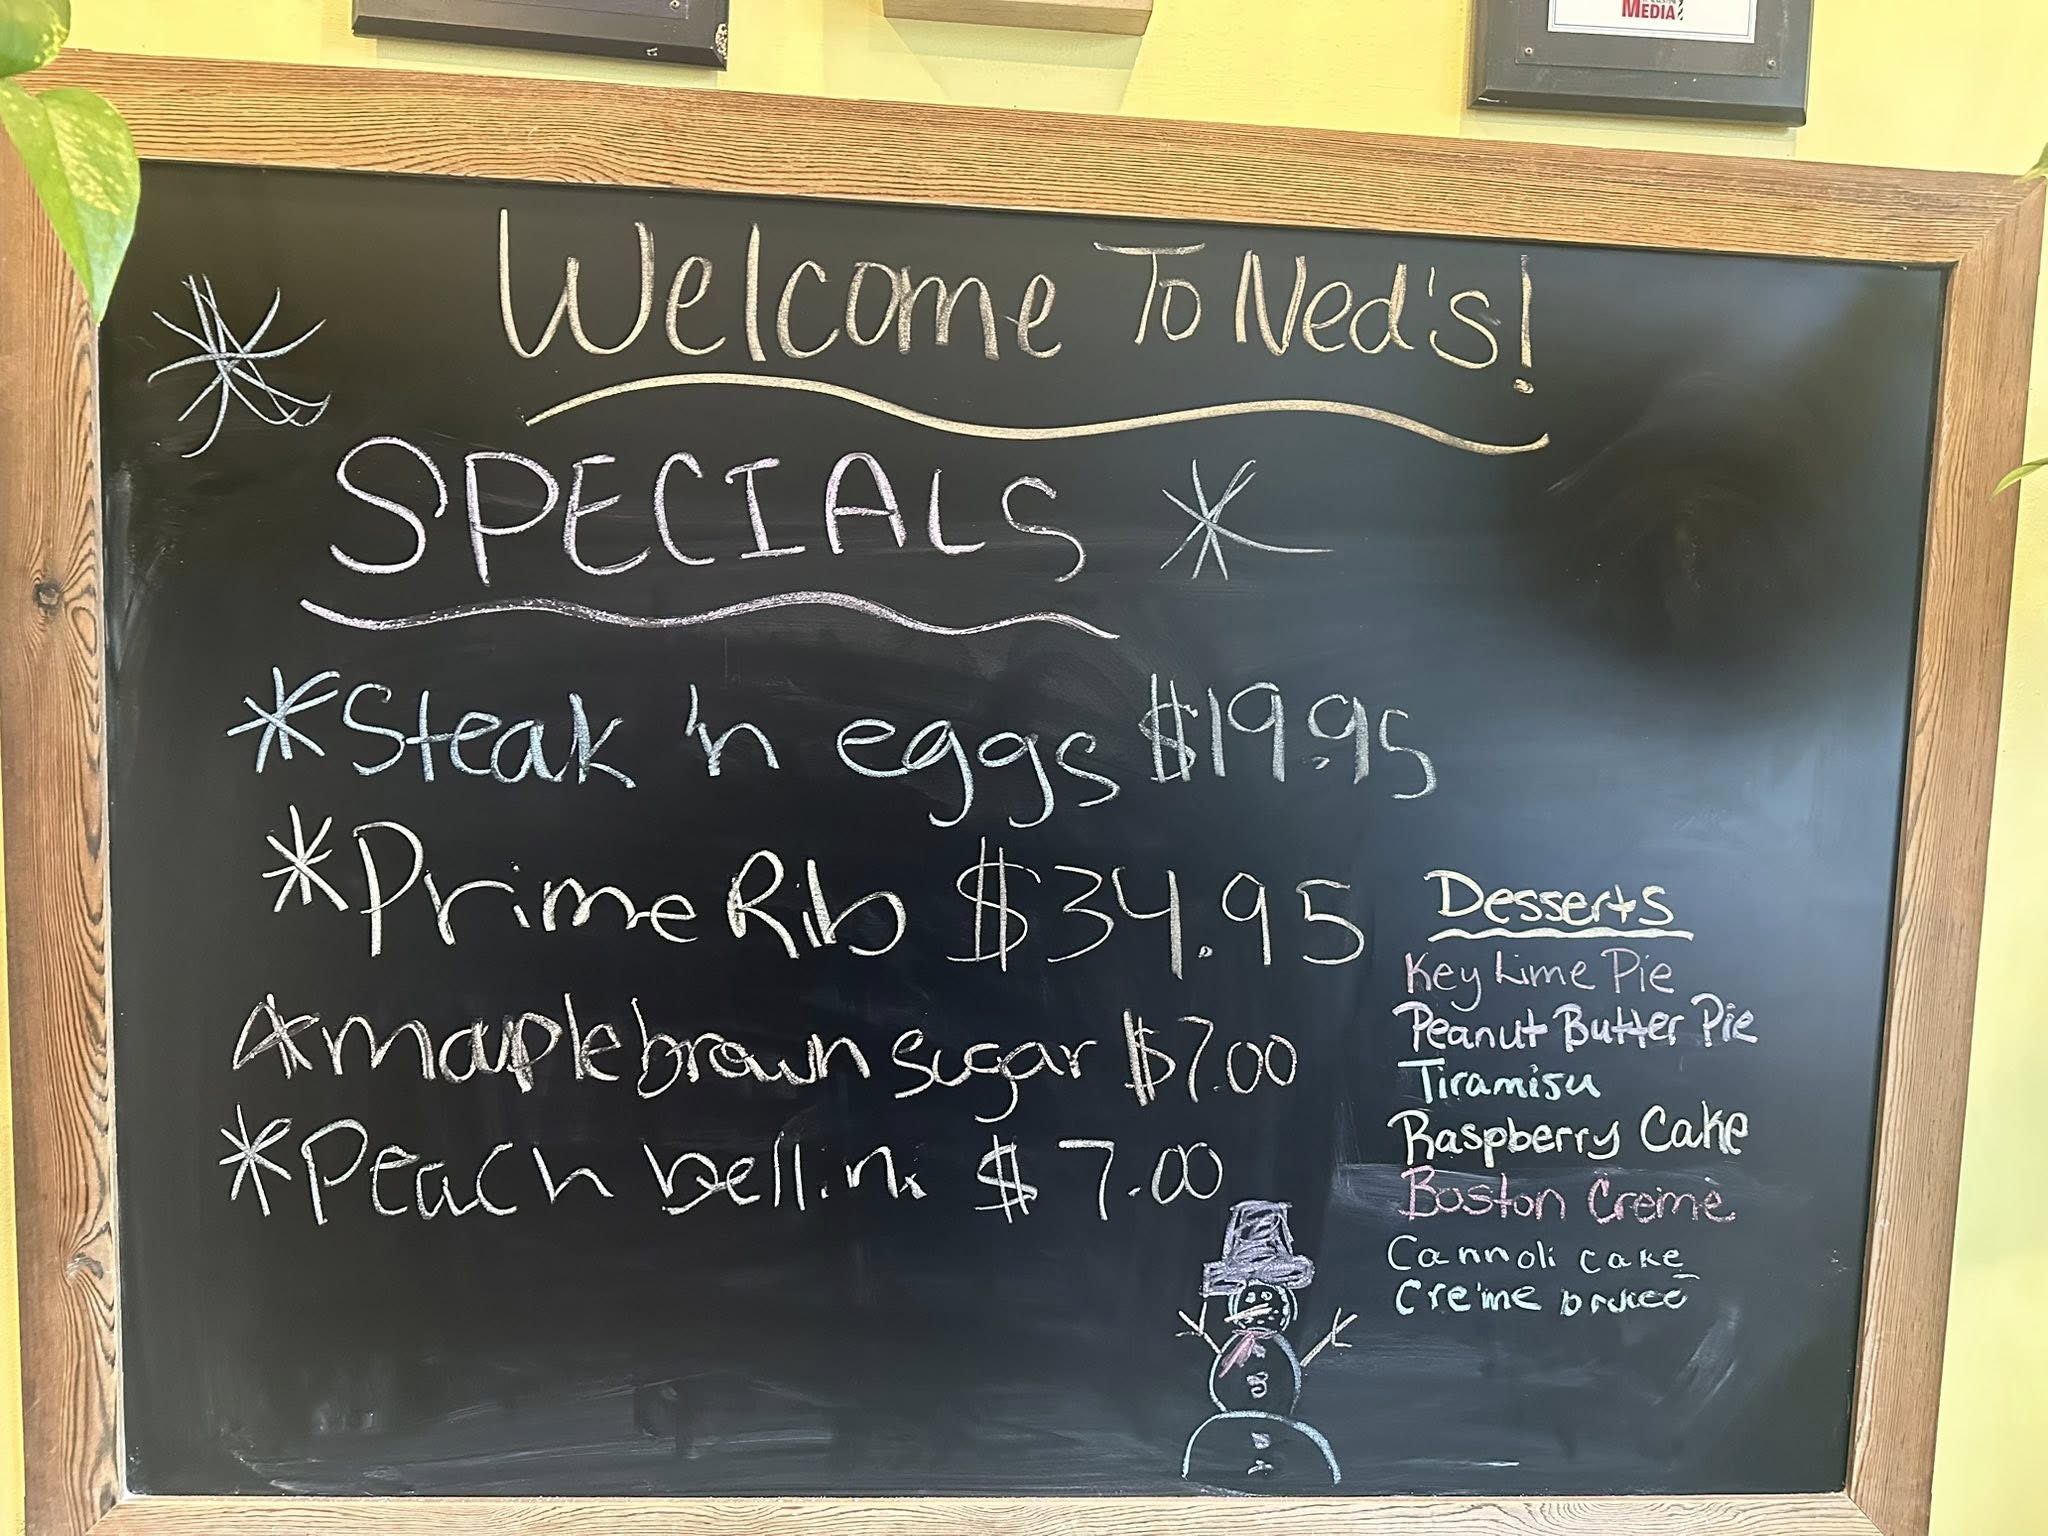 MEDIA
Welcome To Ned's!
SPECIALS
*Steak 'n eggs $19.95
*Prime Rib $34.95
*maple brown sugar $7.00
*Peach bellini $7.00
Desserts
Key Lime Pie
Peanut Butter Pie
Tiramisu
Raspberry Cake
Boston Creme
Cannoli cake
Creme